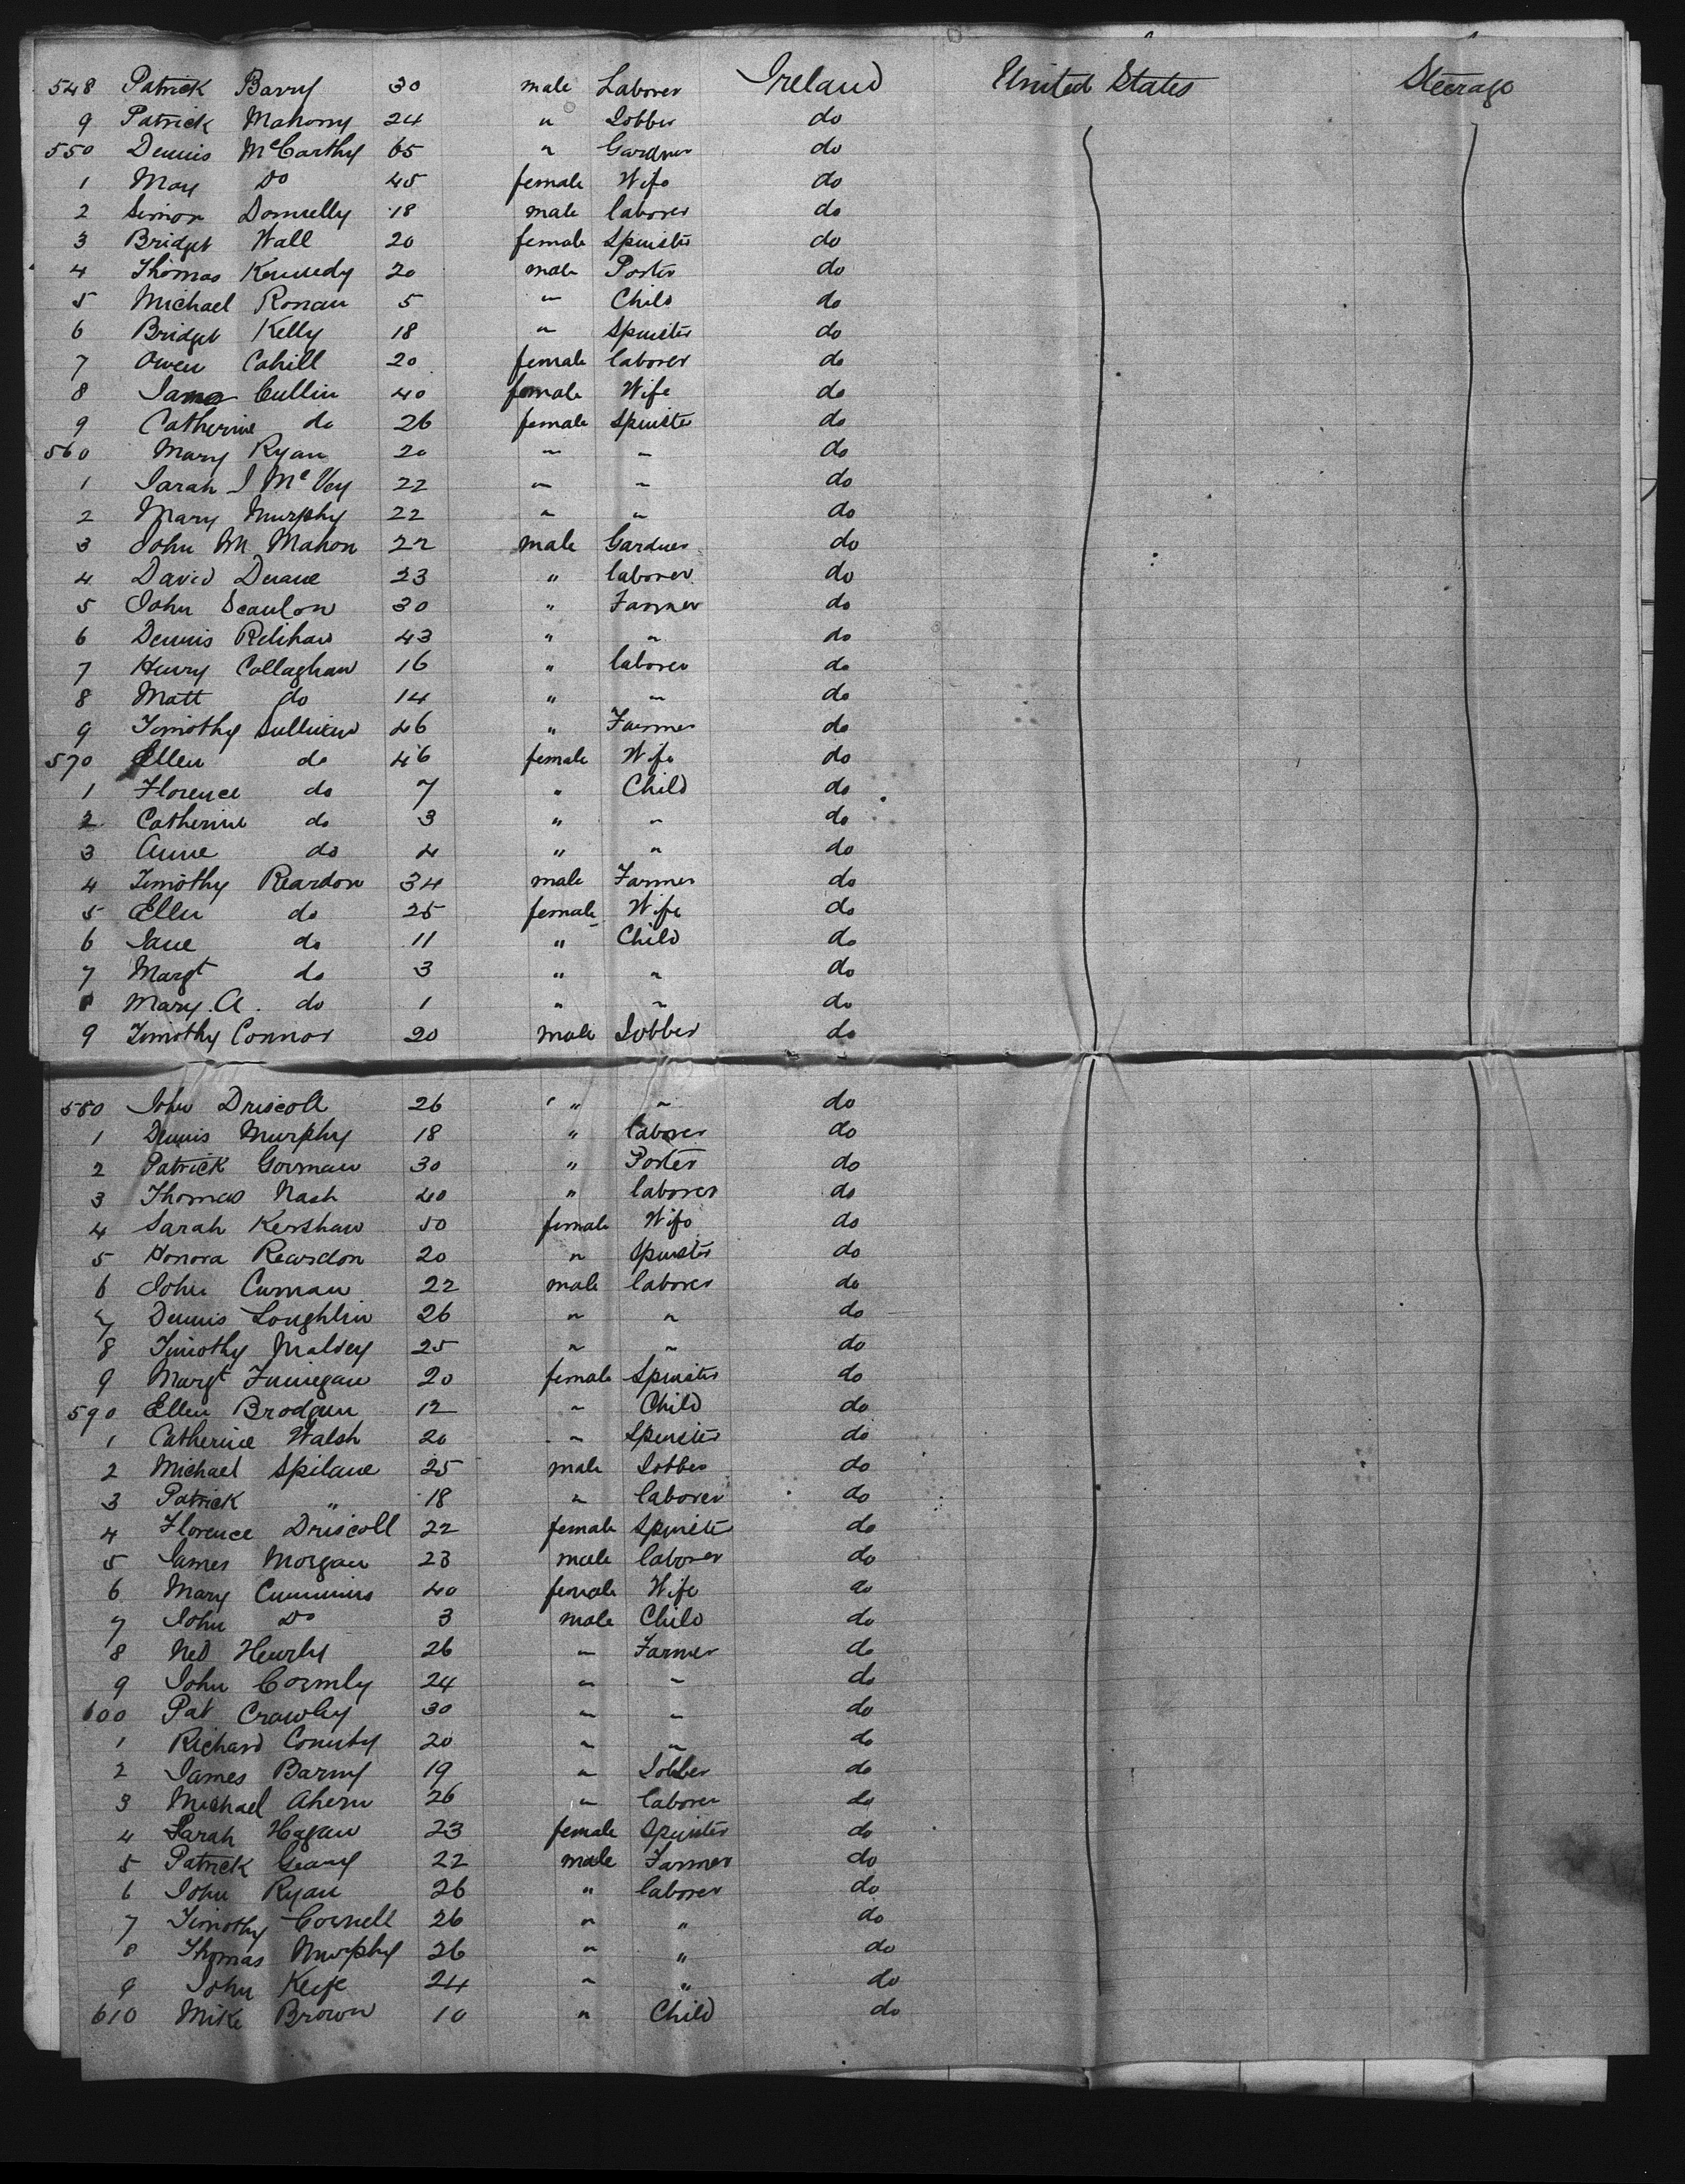 548 Patrick Barry 30 male Laborer Ireland United States Steerage
9 Patrick Mahony 24 " Jobber do
550 Dennis McCarthy 65 " Gardner do
1 May Do 45 female Wife do
2 Simon Donnelly 18 male laborer do
3 Bridget Wall 20 female Spinster do
4 Thomas Kennedy 20 male Porter do
5 Michael Ronan 5 " Child do
6 Bridget Kelly 18 " Spinster do
7 Owen Cahill 20 female laborer do
8 Cullin 40 female Wife do
9 Catherine do 26 female Spinster do
560 Mary Ryan 20 " " do
1 Sarah J McVey 22 " " do
2 Mary Murphy 22 " " do
3 John M Mahon 22 male Gardner do
4 David Duane 23 " laborer do
5 John Scanlon 30 " Farmer do
6 Dennis Relihan 43 " " do
7 Henry Callaghan 16 " laborer do
8 Matt do 14 " " do
9 Timothy Sullivan 46 " Farmer do
570 Ellen do 46 female Wife do
1 Florence do 7 " Child do
2 Catherine do 3 " " do
3 Anne do 4 " " do
4 Timothy Reardon 34 male Farmer do
5 Ellen do 25 female Wife do
6 Jane do 11 " Child do
7 Margt do 3 " " do
8 Mary A. do 1 " " do
9 Timothy Connor 20 male Jobber do
580 John Driscoll 26 " " do
1 Dennis Murphy 18 " laborer do
2 Patrick Gorman 30 " Porter do
3 Thomas Nash 40 " laborer do
4 Sarah Kershaw 50 female Wife do
5 Honora Reardon 20 " Spinster do
6 John Curnan 22 male laborer do
7 Dennis Loughlin 26 " " do
8 Timothy 25 " " do
9 Margt Finnegan 20 female Spinster do
590 Ellen 12 " Child do
1 Catherine Walsh 20 " Spinster do
2 Michael Spilane 25 male Jobber do
3 Patrick " 18 " laborer do
4 Florence Driscoll 22 female Spinster do
5 James Morgan 23 male laborer do
6 Mary Cummins 40 female Wife do
7 John Do 3 male Child do
8 Ned 26 " Farmer do
9 John Cormly 24 " " do
600 Pat Crawley 30 " " do
1 Richard 20 " " do
2 James Barry 19 " Jobber do
3 Michael Ahern 26 " laborer do
4 Sarah Hagan 23 female Spinster do
5 Patrick Geary 22 male Farmer do
6 John Ryan 26 " laborer do
7 Timothy Cornell 26 " " do
8 Thomas Murphy 26 " " do
9 John Keefe 24 " " do
610 Mike Brown 10 " Child do